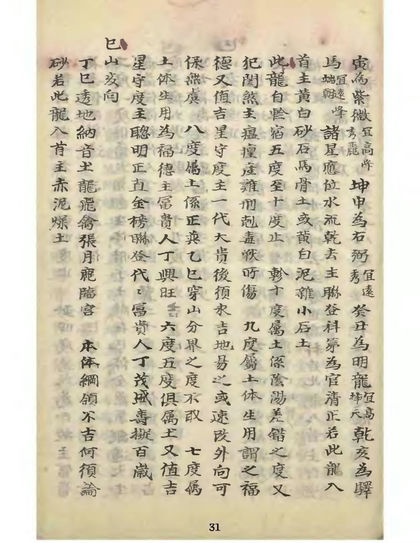 寅為紫微宜高峰秀麗坤申為石弼宜遠秀癸丑為明龍宜高坤天乾亥為驛
馬宜遠峰端輕諸星應位水流乾去主聯登科第為官清正若此龍入
首主黃白砂石馬骨土或黃白泥雜小石土
此龍白黔宿五度至十度止 軫十度屬土係陰陽差錯之度又
犯関煞主瘟𤺥庭雜刑剋毒喉吁傷 九度屬土体生用謂之福
德又值吉星守度主一代大貴後須水吉地易之或速改外向可
保無虞 八度屬土係正丙乙巳穿山分界之度不取 七度屬
土体生用為福德主富貴人丁興旺 六度五度俱屬土又值吉
星守度主聰明正直金榜聯登代代富貴人丁茂盛壽擬百歲
巳山亥向
丁巳透地納音土龍飛禽張月鹿臨宮 本体綱領不吉何須論
砂若此龍入首主赤泥燥土
31